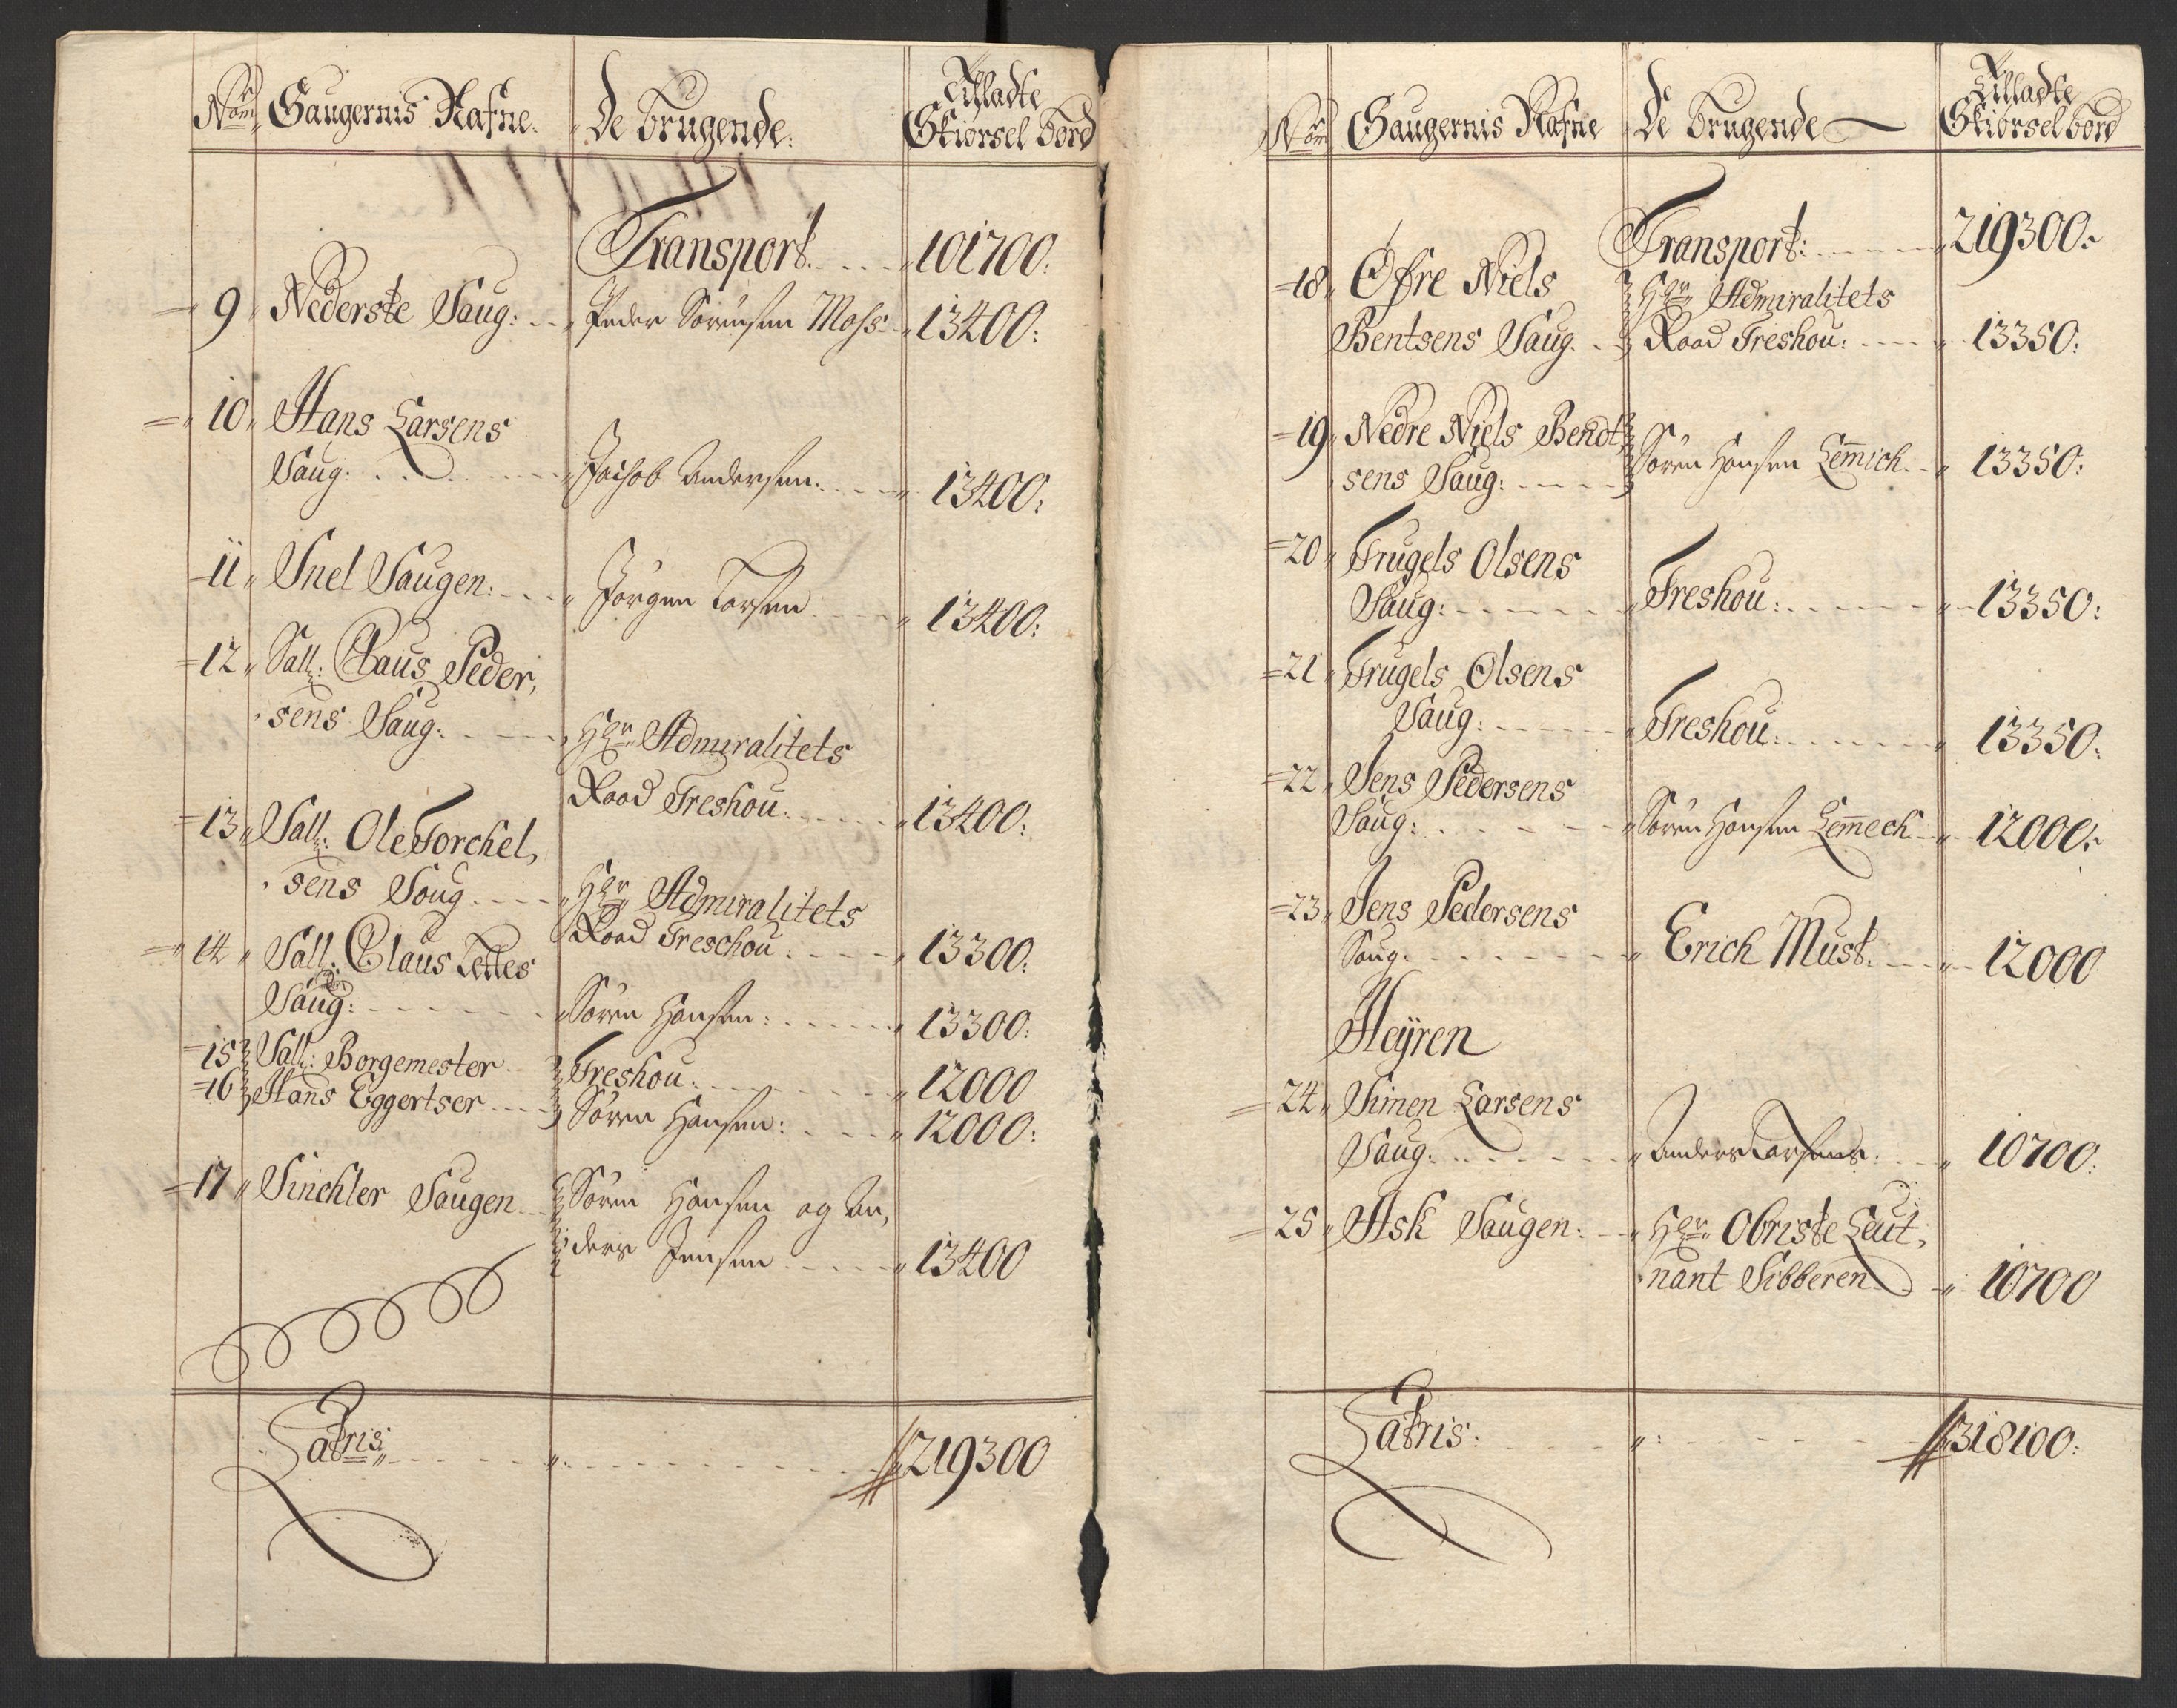 Nom Saugernis Nafne. De Brugende: Tilladte
Skiørsel bord
Transport. 101700:
9 Nederste Saug: Peder Sørensen Moss 13400:
10 Hans Larsens
Saug: Jachob Andersen. 13400:
11 Snel Saugen: Jørgen Larsen 13400:
12 Sall: Claus Peder,
sens Saug: Hr Admiralitets
Raad Treshou: 13400:
13 Sall: Ole Torchel,
sens Saug Hr Admiralitets
Raad Treschou: 13300:
14 Sall: Claus Zettes
Saug: Søren Hansen: 13300:
15 Sall: Borgemester Treshou 12000
16 Hans Eggertser Søren Hansen: 12000:
17 Sinchler Saugen Søren Hansen og An,
ders Jensen 13400
Latris 219300
Nom Saugernis Nafne De Brugende Tilladte
Skiørsel bord
Transport: 219300:
18 Øfre Niels Hr Admiralitets
Bentsens Saug. Raad Treshou: 13350:
19 Nedre Niels Bendt,
sens Saug: Søren Hansen Lem̄ich 13350:
20 Trugels Olsens
Saug: Treshou: 13350:
21 Trugels Olsens
Saug: Treshou: 13350:
22 Jens Pedersens
Saug: Søren Hansen Lem̄ech 12000:
23 Jens Pedersens
Saug. Erich Must. 12000
Heÿren
24 Simen Larsens
Saug. Anders Larsens. 10700:
25 Ask Saugen: Hr Obriste Leut,
nant Sibberen 10700
Latris: 318100: